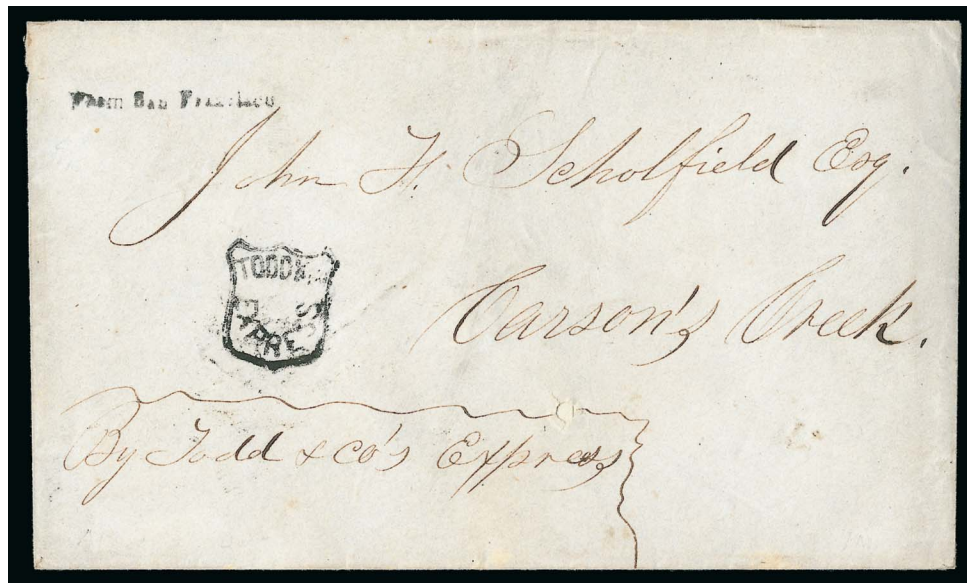 From San Francisco
John H. Scholfield Esq.
TODD &
EXPRESS
Carson's Creek.
By Todd & Co's Express